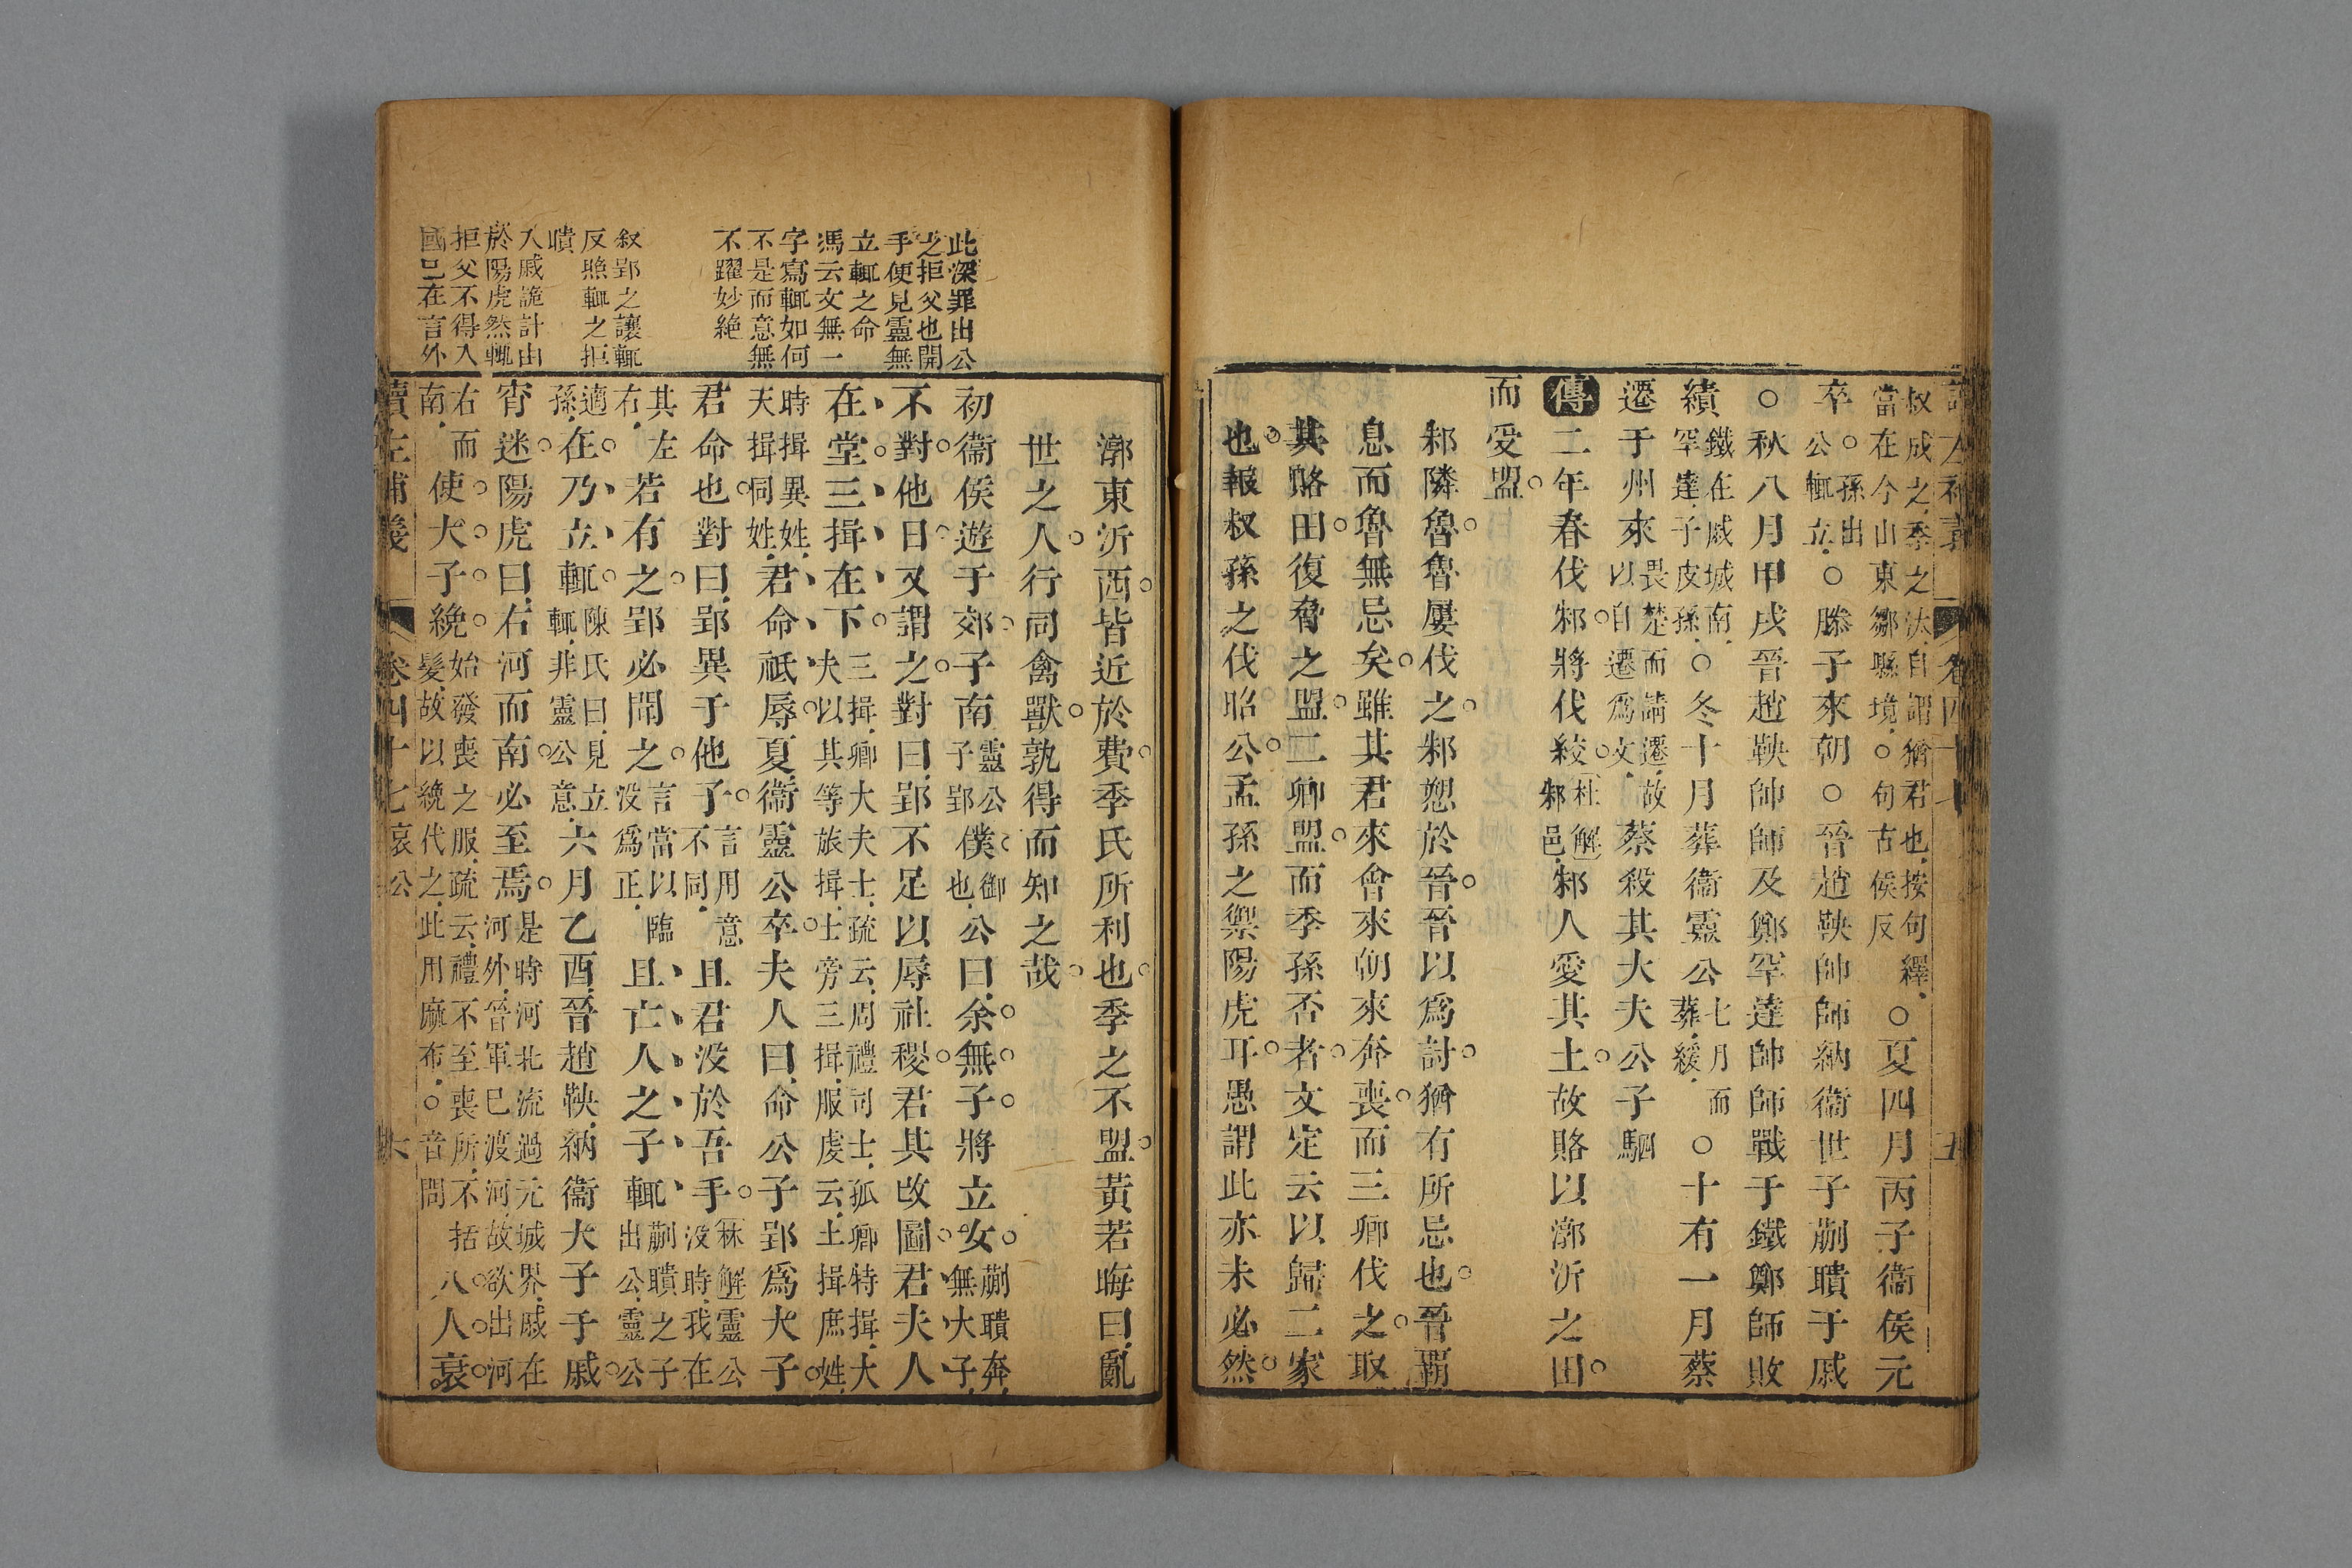 叔成之季之汰自謂猶君也按句繹
當在今山東鄒縣境○句古侯反
○夏四月丙子衞侯元
卒公孫出輒立○滕子來朝○晉趙鞅帥師納衞世子蒯聵于戚
○秋八月甲戌晉趙鞅帥師及鄭罕達帥師戰于鐵鄭師敗
績鐵在戚城南罕達子皮孫○冬十月葬衞靈公七月而葬緩○十有一月蔡
遷于州來畏楚而請遷故以自遷爲文蔡殺其大夫公子駟
傳二年春伐邾將伐絞杜解邾邑邾人愛其土故賂以漷沂之田
而受盟
邾隣魯魯屢伐之邾愬於晉晉以爲討猶有所忌也晉霸
息而魯無忌矣雖其君來會來朝來奔喪而三卿伐之取
其賂田復脅之盟二卿盟而季孫否者文定云以歸二家
也報叔孫之伐昭公孟孫之禦陽虎耳愚謂此亦未必然
漷東沂西皆近於費季氏所利也季之不盟黃若晦曰亂
世之人行同禽獸孰得而知之哉
此深罪出公
之拒父也開
手便見靈無
立輒之命
馮云文無一
字寫輒如何
不是而意無
不躍妙絶
初衞侯遊于郊子南靈公子郢僕御也公曰余無子將立女蒯聵奔無大子
不對他日又謂之對曰郢不足以辱社稷君其改圖君夫人
在堂三揖在下三揖卿大夫士疏云周禮司士孤卿特揖大夫以其等旅揖士旁三揖服虔云土揖庶姓
時揖異姓天揖同姓君命祗辱夏衞靈公卒夫人曰命公子郢爲大子
君命也對曰郢異于他子言用意不同且君没於吾手林解靈公没時我在
其左右若有之郢必聞之言當以臨没爲正且亡人之子輒蒯聵之子出公靈公
叙郢之讓輒
反照輒之拒
聵
適孫在乃立輒陳氏曰見立輒非靈公意六月乙酉晉趙鞅納衞大子于戚
入戚詭計由
於陽虎然輒
拒父不得入
國已在言外
宵迷陽虎曰右河而南必至焉是時河北流過元城界戚在河外晉軍已渡河故欲出河
右而南使大子絻始發喪之服疏云禮不至喪所不括髮故以絻代之此用麻布○音問八人衰
讀左補義 卷四十七 哀公 六